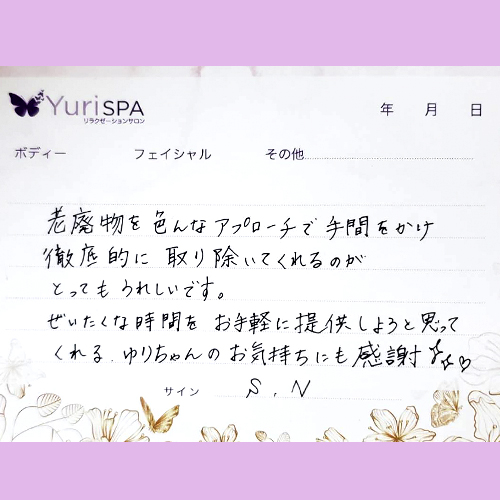 YuriSPA
リラクゼーションサロン
年 月 日
ボディー フェイシャル その他
老廃物を色んなアプローチで手間をかけ
徹底的に取り除いてくれるのが
とってもうれしいです。
ぜいたくな時間をお手軽に提供しようと思って
くれる、ゆりちゃんのお気持ちにも感謝
サイン S.N